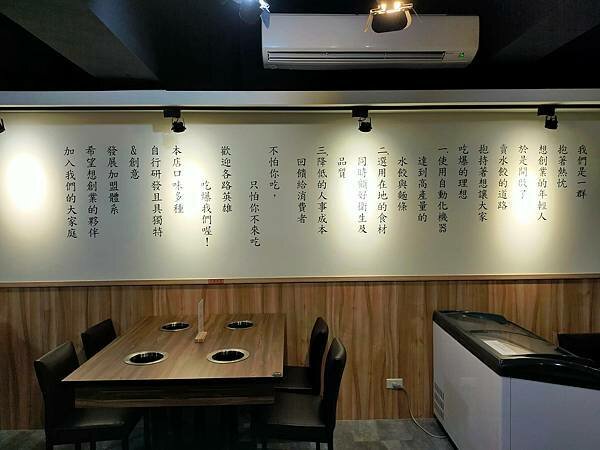 我們是一群
抱著熱忱
想創業的年輕人
於是開啟了
賣水餃的道路
抱持著想讓大家
吃爆的理想
一.使用自動化機器
達到高產量的
水餃與麵條
二.選用在地的食材
同時顧好衛生及
品質
三.降低的人事成本
回饋給消費者
不怕你吃，
只怕你不來吃
歡迎各路英雄
吃爆我們喔！
本店口味多種
自行研發且具獨特
&創意
發展加盟體系
希望想創業的夥伴
加入我們的大家庭